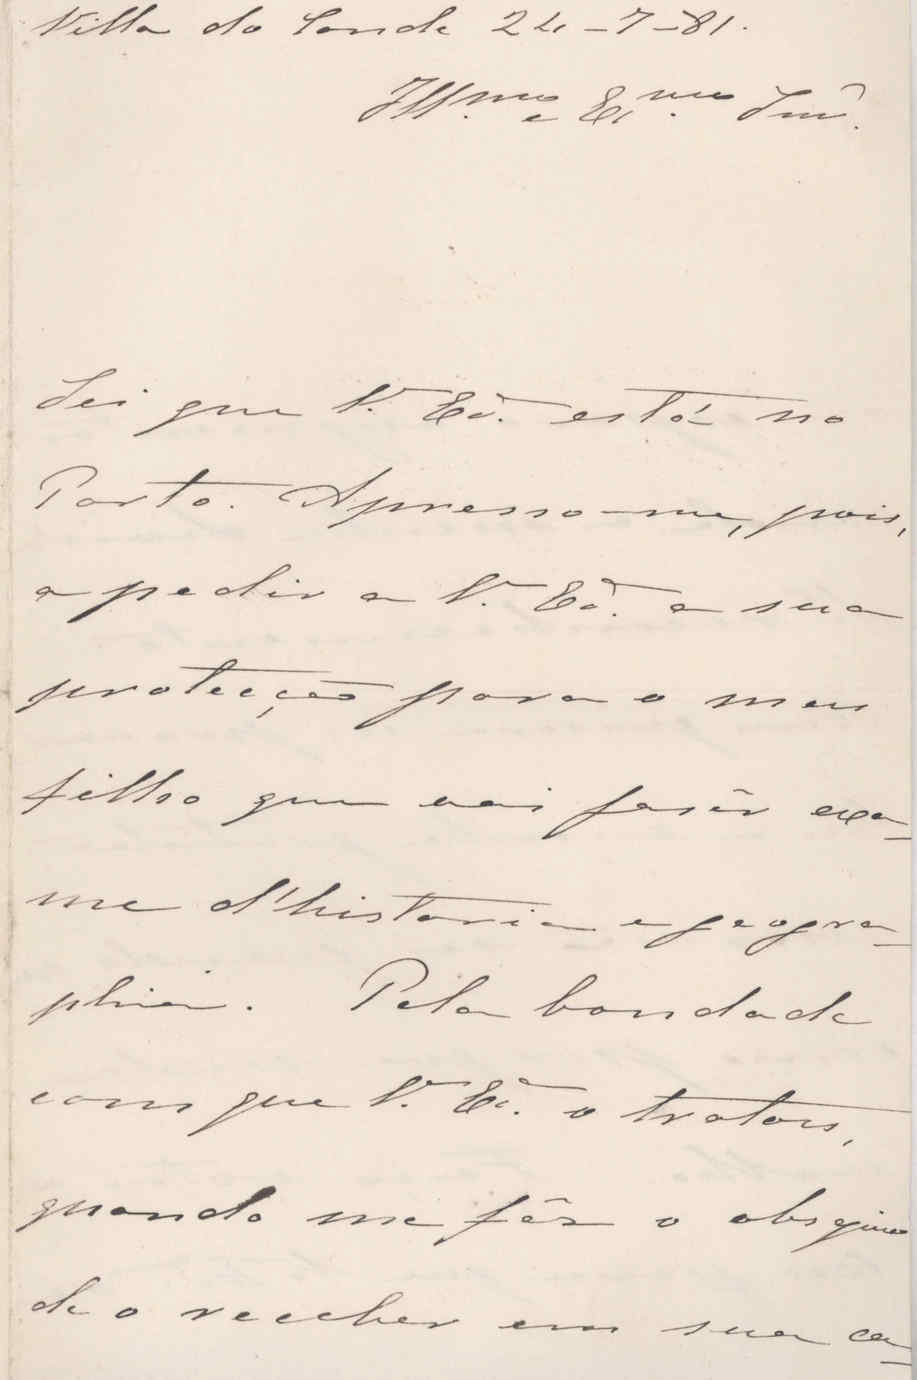 Villa do Conde 24-7-81.
Ill.mo e Ex.mo Snr.
Sei que V. Exª. está no
Porto. Apresso-me, pois,
a pedir a V. Exª. a sua
protecção para o meu
filho que vai fasêr exa-
me d'historia e geogra-
phia. Pela bondade
com que V. Exª. o tratou,
quando me fêz o obsequio
de o receber em sua ca-